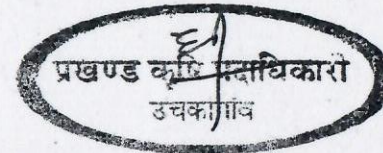 प्रखण्ड कृषि पदाधिकारी
उचकागाँव